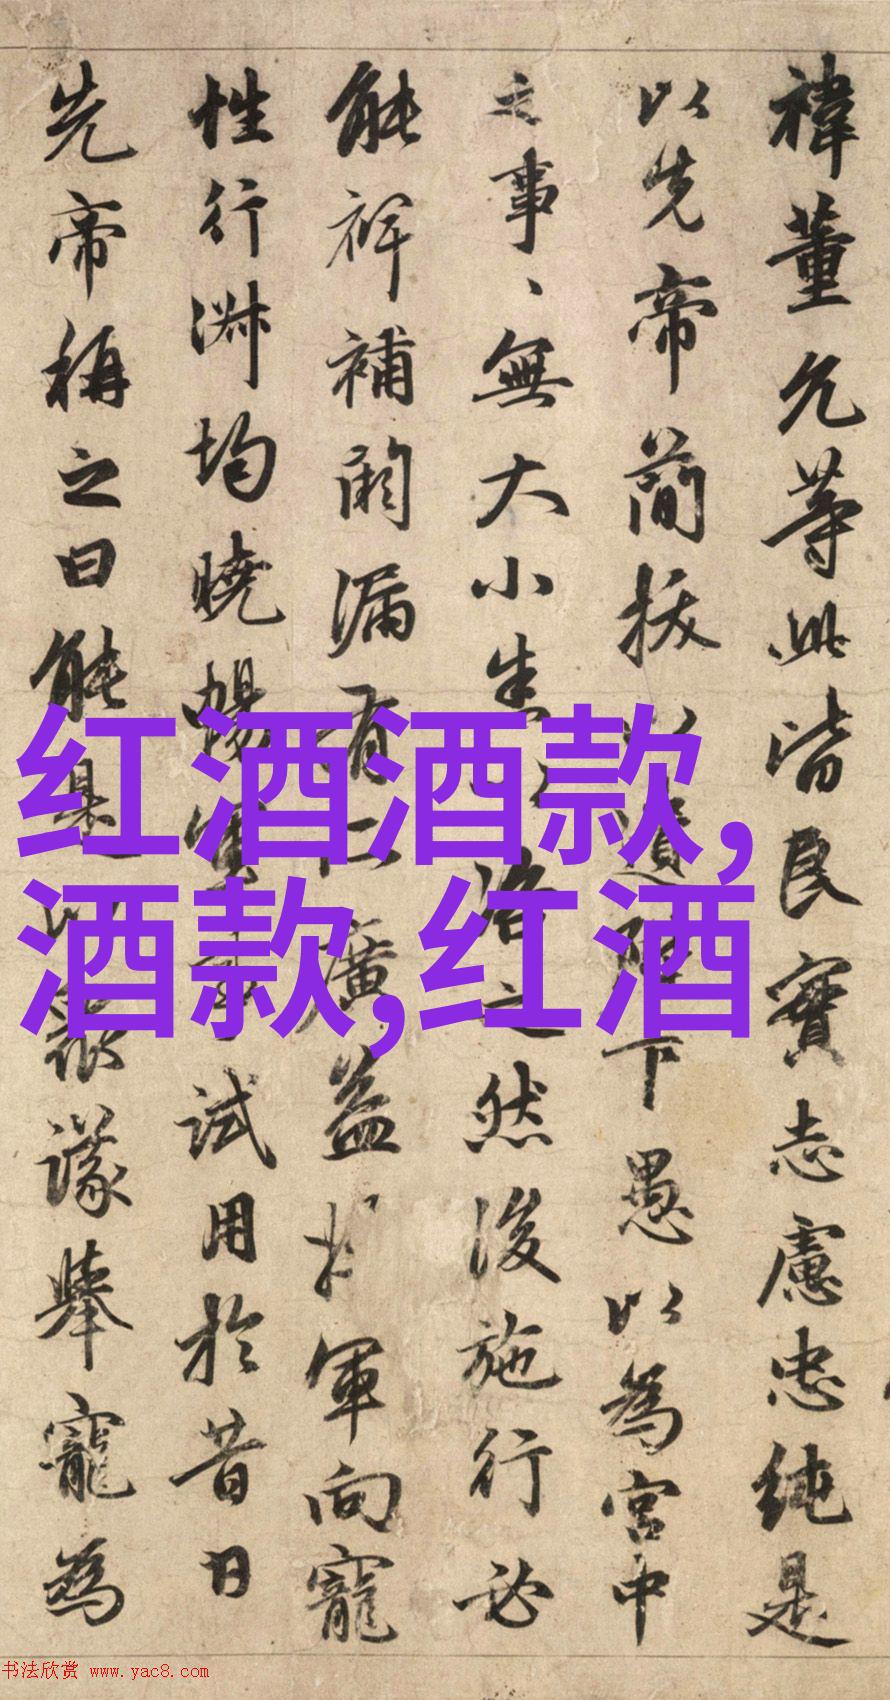 禕董允等此皆良實志慮忠純是
以先帝簡拔以遺陛下愚以為宮中
之事、無大小悉以咨之然後施行必
能裨補闕漏有所廣益將軍向寵
性行淑均曉暢軍事試用於昔日
先帝稱之曰能是以衆議舉寵為
红酒酒款,
酒款,红酒
书法欣赏 www.yac8.com